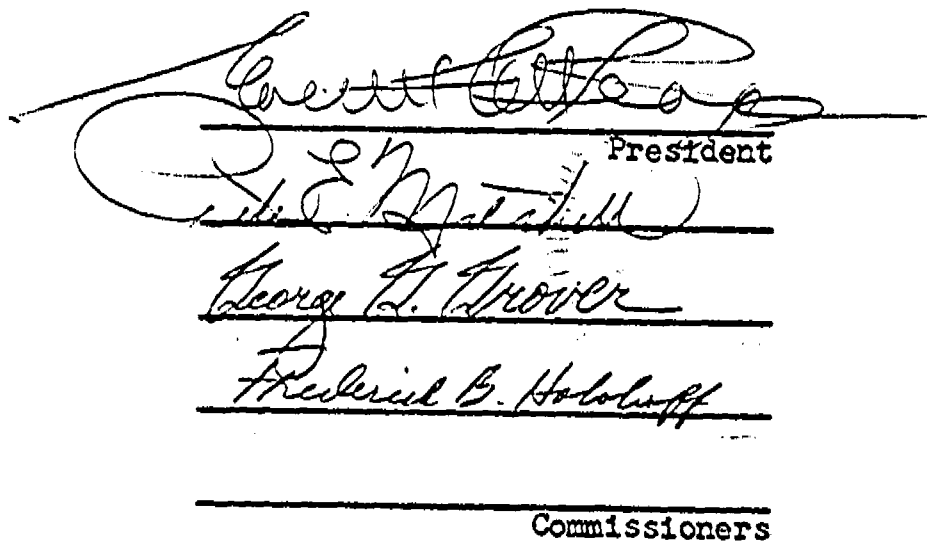 Everett C. McKeage
President
Peter E. Mitchell
George G. Grover
Frederick B. Holoboff
Commissioners